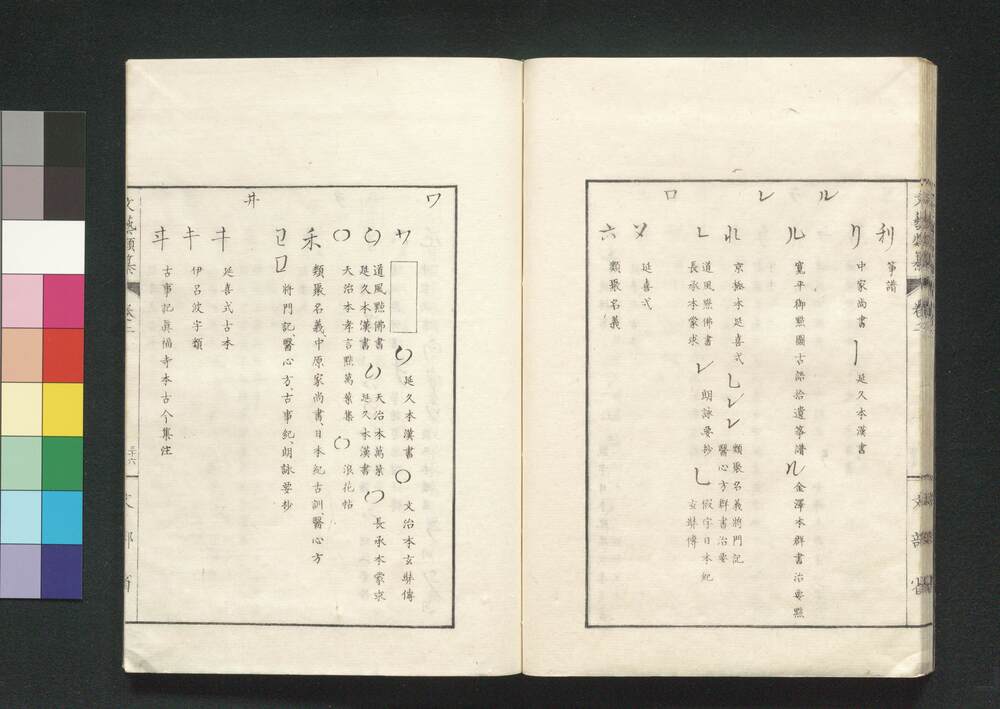 利 箏譜
リ 中家尚書 丨 延久本漢書
ル
ル 寛平御點圖古探拾遺箏譜 ル 金澤本群書治要點
レ
礼 京極本延喜式 し レ レ 類聚名義將門記
醫心方群書治要
レ 道風點佛書
長承本蒙求 レ 朗詠要抄 乚 假字日本紀
玄奘傳
ロ
延喜式
六 類聚名義
ワ
サ 延久本漢書 〇 文治本玄奘傳
〇 道風點佛書
延久本漢書 天治本萬葉
延久本漢書 長承本蒙求
〇 天治本孝言點萬葉集 〇 浪花帖
禾 類聚名義、中原家尚書、日本紀古訓、醫心方
口 將門記、醫心方、古事紀、朗詠要抄
井
キ 延喜式古本
キ 伊呂波字類
古事記眞福寺本古今集注
文藝類纂 卷二
三十六
文部省